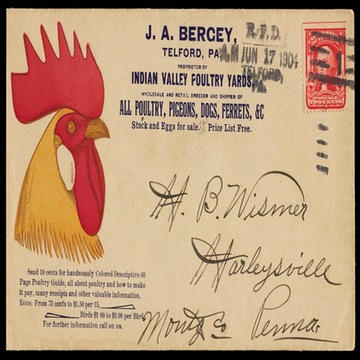 J. A. BERGEY,
TELFORD, PA.
PROPRIETOR OF
INDIAN VALLEY POULTRY YARDS
WHOLESALE AND RETAIL BREEDER AND SHIPPER OF
ALL POULTRY, PIGEONS, DOGS, FERRETS, &C
Stock and Eggs for sale. Price List Free.
R.F.D.
A.M JUN 17 1904
TELFORD,
PA.
1
POSTAGE
TWO CENTS
H. B. Wismer
Harleysville
Montg Co Penna
Send 10 cents for handsomely Colored Descriptive 60
Page Poultry Guide, all about poultry and how to make
it pay, many receipts and other valuable information.
EGGS: From 75 cents to $1.50 per 15.
Birds $1 00 to $1 00 per Bird.
For further information call on us.